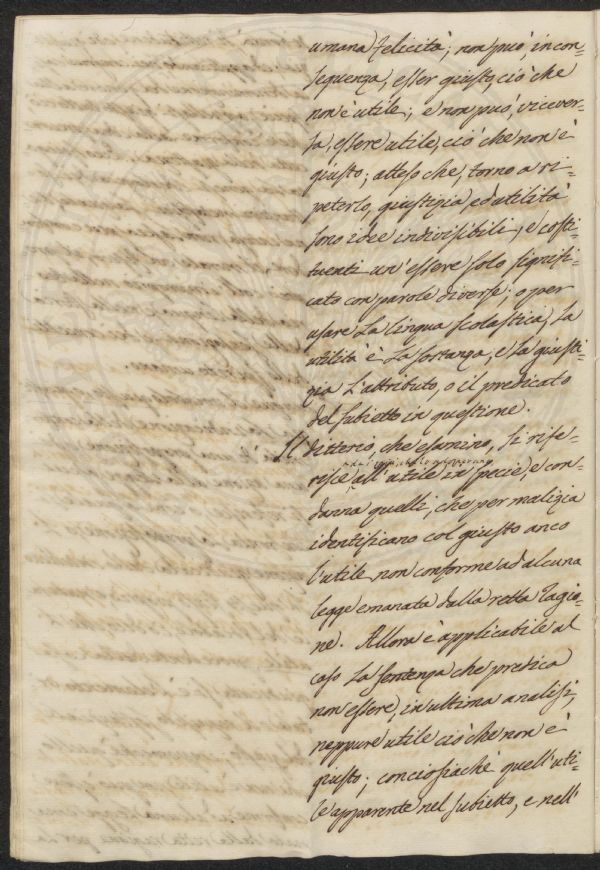 umana felicità; non può, in con-
seguenza, esser giusto, ciò che
non è utile; e non può, vicever-
sa, essere utile, ciò che non è
giusto; atteso che, torno a ri-
peterlo, giustizia ed utilità
sono idee indivisibili, e costi-
tuenti un'essere solo signifi-
cato con parole diverse; o per
usare la lingua scolastica, la
utilità è la sostanza, e la giusti-
zia l'attributo, o il predicato
del subietto in questione.
Il ditterio, che esamino, si rife-
risce, all'utile in specie, e con-
danna quelli, che per malizia
identificano col giusto anco
l'utile non conforme ad alcuna
legge emanata dalla retta ragio-
ne. Allora è applicabile al
caso la sentenza che predica
non essere, in ultima analisi,
neppure utile ciò che non è
giusto; conciosiachè quell'uti-
le apparente nel subietto, e nell'